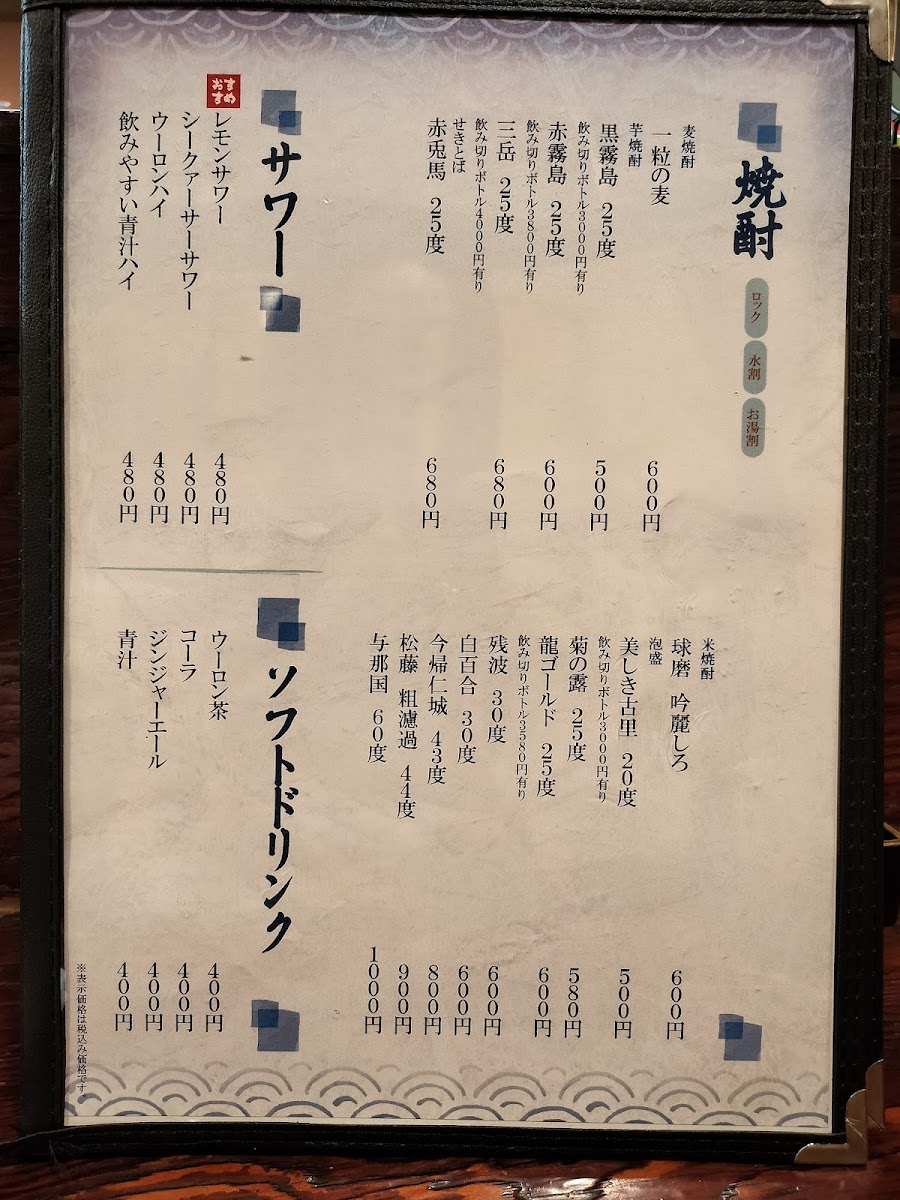 焼酎
ロック
水割
お湯割
麦焼酎
一粒の麦 600円
芋焼酎
黒霧島 25度 500円
飲み切りボトル3000円有り
赤霧島 25度 600円
飲み切りボトル3800円有り
三岳 25度 680円
飲み切りボトル4000円有り
せきとば
赤兎馬 25度 680円
米焼酎
球磨 吟麗しろ 600円
泡盛
美しき古里 20度 500円
飲み切りボトル3000円有り
菊の露 25度 580円
龍ゴールド 25度 600円
飲み切りボトル3580円有り
残波 30度 600円
白百合 30度 600円
今帰仁城 43度 800円
松藤 粗濾過 44度 900円
与那国 60度 1000円
サワー
おすすめ
レモンサワー 480円
シークァーサーサワー 480円
ウーロンハイ 480円
飲みやすい青汁ハイ 480円
ソフトドリンク
ウーロン茶 400円
コーラ 400円
ジンジャーエール 400円
青汁 400円
※表示価格は税込み価格です。